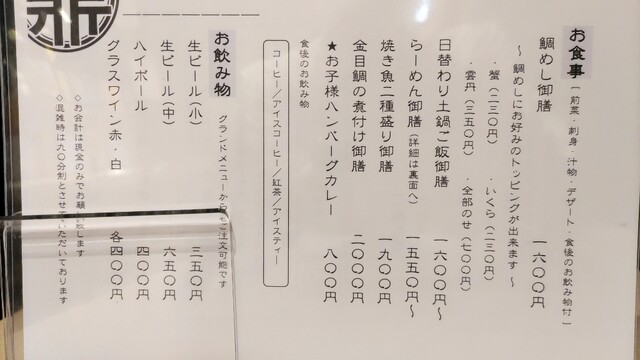 お食事
[前菜・刺身・汁物・デザート・食後のお飲み物付]
鯛めし御膳 一六〇〇円
～鯛めしにお好みのトッピングが出来ます～
・蟹(二三〇円) ・いくら(二三〇円)
・雲丹(三五〇円) ・全部のせ(七〇〇円)
日替わり土鍋ご飯御膳 一六〇〇円～
らーめん御膳(詳細は裏面へ) 一五五〇円～
焼き魚二種盛り御膳 一九〇〇円
金目鯛の煮付け御膳 二〇〇〇円
★お子様ハンバーグカレー 八〇〇円
食後のお飲み物
コーヒー／アイスコーヒー／紅茶／アイスティー
お飲み物
グランドメニューからもご注文可能です
生ビール(小) 三五〇円
生ビール(中) 六五〇円
ハイボール 四〇〇円
グラスワイン赤・白 各四〇〇円
◇お会計は現金のみでお願い致します
◇混雑時は九〇分制とさせていただいております